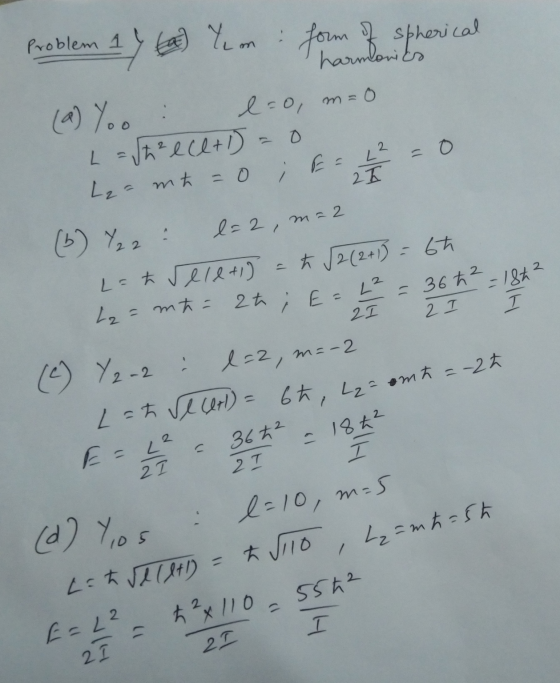 Problem 1 (a) Yₗₘ : form of spherical
harmonics
(a) Y₀₀ : l=0, m=0
L = √ħ² l(l+1) = 0
L_z = mħ = 0 ; E = L²/2I = 0
(b) Y₂₂ : l=2, m=2
L = ħ √l(l+1) = ħ √2(2+1) = 6ħ
L_z = mħ = 2ħ ; E = L²/2I = 36ħ²/2I = 18ħ²/I
(c) Y₂₋₂ : l=2, m=-2
L = ħ √l(l+1) = 6ħ, L_z = mħ = -2ħ
E = L²/2I = 36ħ²/2I = 18ħ²/I
(d) Y₁₀ ₅ : l=10, m=5
L = ħ √l(l+1) = ħ √110 , L_z = mħ = 5ħ
E = L²/2I = ħ²×110/2I = 55ħ²/I